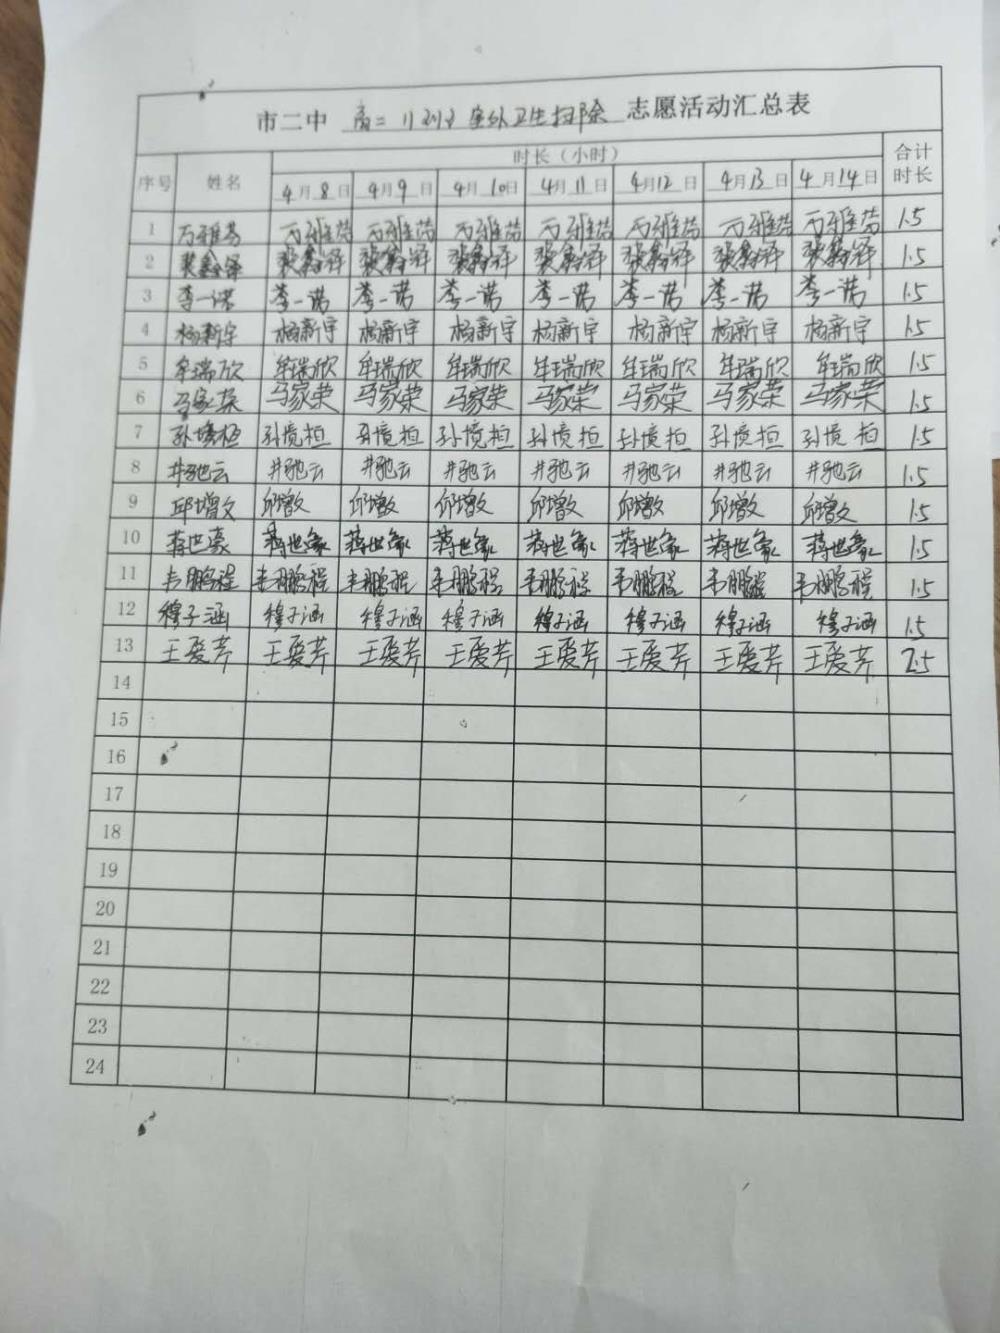 市二中 高二 室外卫生扫除 志愿活动汇总表
序号 姓名 时长（小时） 合计时长
4月8日 4月9日 4月10日 4月11日 4月12日 4月13日 4月14日
1 1.5
2 裴鑫泽 裴鑫泽 裴鑫泽 裴鑫泽 裴鑫泽 裴鑫泽 裴鑫泽 裴鑫泽 1.5
3 李一诺 李一诺 李一诺 李一诺 李一诺 李一诺 李一诺 李一诺 1.5
4 杨新宇 杨新宇 杨新宇 杨新宇 杨新宇 杨新宇 杨新宇 杨新宇 1.5
5 牟瑞欣 牟瑞欣 牟瑞欣 牟瑞欣 牟瑞欣 牟瑞欣 牟瑞欣 牟瑞欣 1.5
6 马家荣 马家荣 马家荣 马家荣 马家荣 马家荣 马家荣 马家荣 1.5
7 1.5
8 井驰云 井驰云 井驰云 井驰云 井驰云 井驰云 井驰云 井驰云 1.5
9 邱增文 邱增文 邱增文 邱增文 邱增文 邱增文 邱增文 邱增文 1.5
10 蒋世豪 蒋世豪 蒋世豪 蒋世豪 蒋世豪 蒋世豪 蒋世豪 蒋世豪 1.5
11 韦鹏程 韦鹏程 韦鹏程 韦鹏程 韦鹏程 韦鹏程 韦鹏程 韦鹏程 1.5
12 穆子涵 穆子涵 穆子涵 穆子涵 穆子涵 穆子涵 穆子涵 穆子涵 1.5
13 王爱芹 王爱芹 王爱芹 王爱芹 王爱芹 王爱芹 王爱芹 王爱芹 2.5
14
15
16
17
18
19
20
21
22
23
24